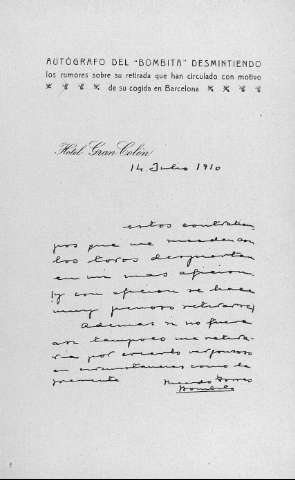 AUTÓGRAFO DEL "BOMBITA" DESMINTIENDO
los rumores sobre su retirada que han circulado con motivo
de su cogida en Barcelona
Hotel Gran Colón
14 Julio 1910
estos contratiem
pos que me mandan
los toros despiertan
en mi mas aficion
¡y con aficion se hace
muy penoso retirarse!
Ademas si no fuera
asi tampoco me retira-
ria por creerlo vergonzoso
en circunstancias como la
presente Ricardo Torres
Bombita